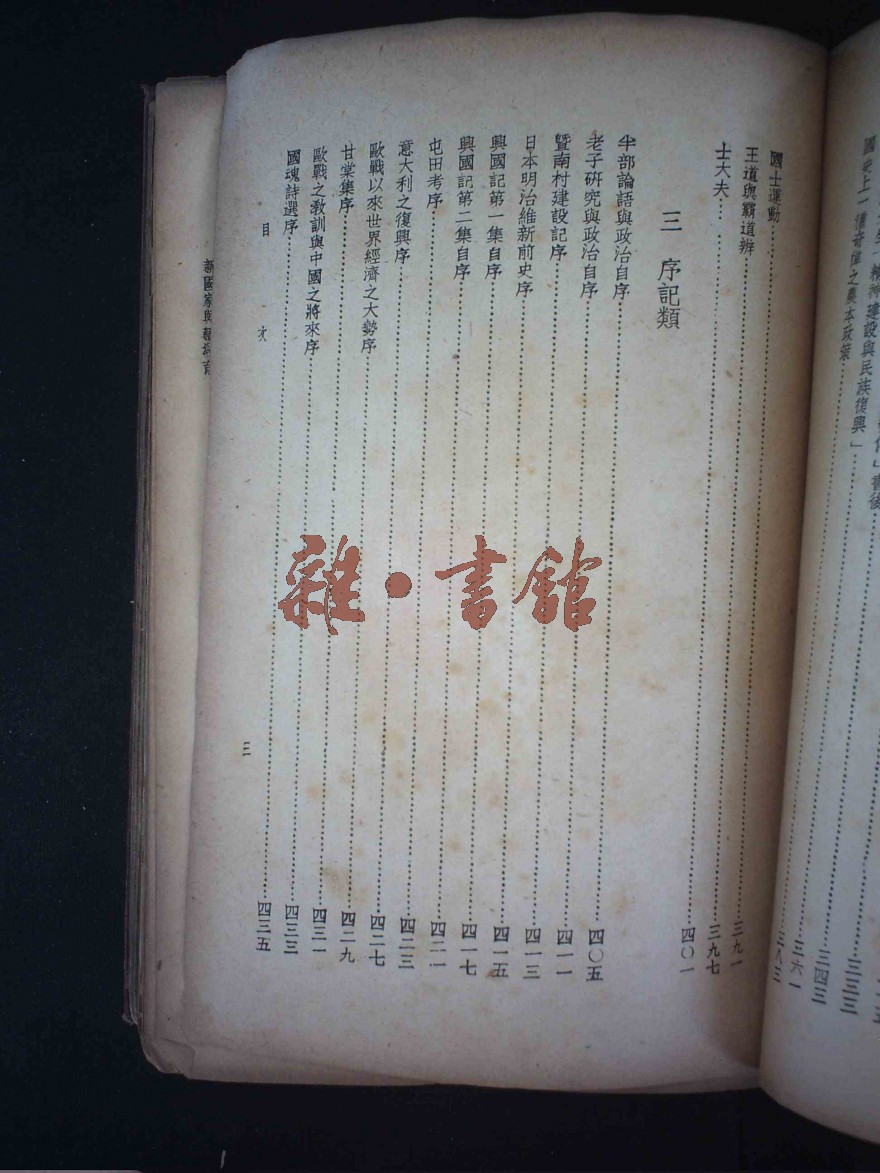 書後……三四三
精神建設與民族復興」……三六一
國史上一 奇偉之農本政策……三八三
國士運動……三九一
王道與霸道辨……三九七
士大夫……四〇一
三 序記類
半部論語與政治自序……四〇五
老子研究與政治自序……四一一
暨南村建設記序……四一三
日本明治維新前史序……四一五
興國記第一集自序……四一七
興國記第二集自序……四二一
屯田考序……四二三
意大利之復興序……四二七
歐戰以來世界經濟之大勢序……四二九
甘棠集序……四三一
歐戰之教訓與中國之將來序……四三三
國魂詩選序……四三五
目 次
三
新國家與新
雜·書館